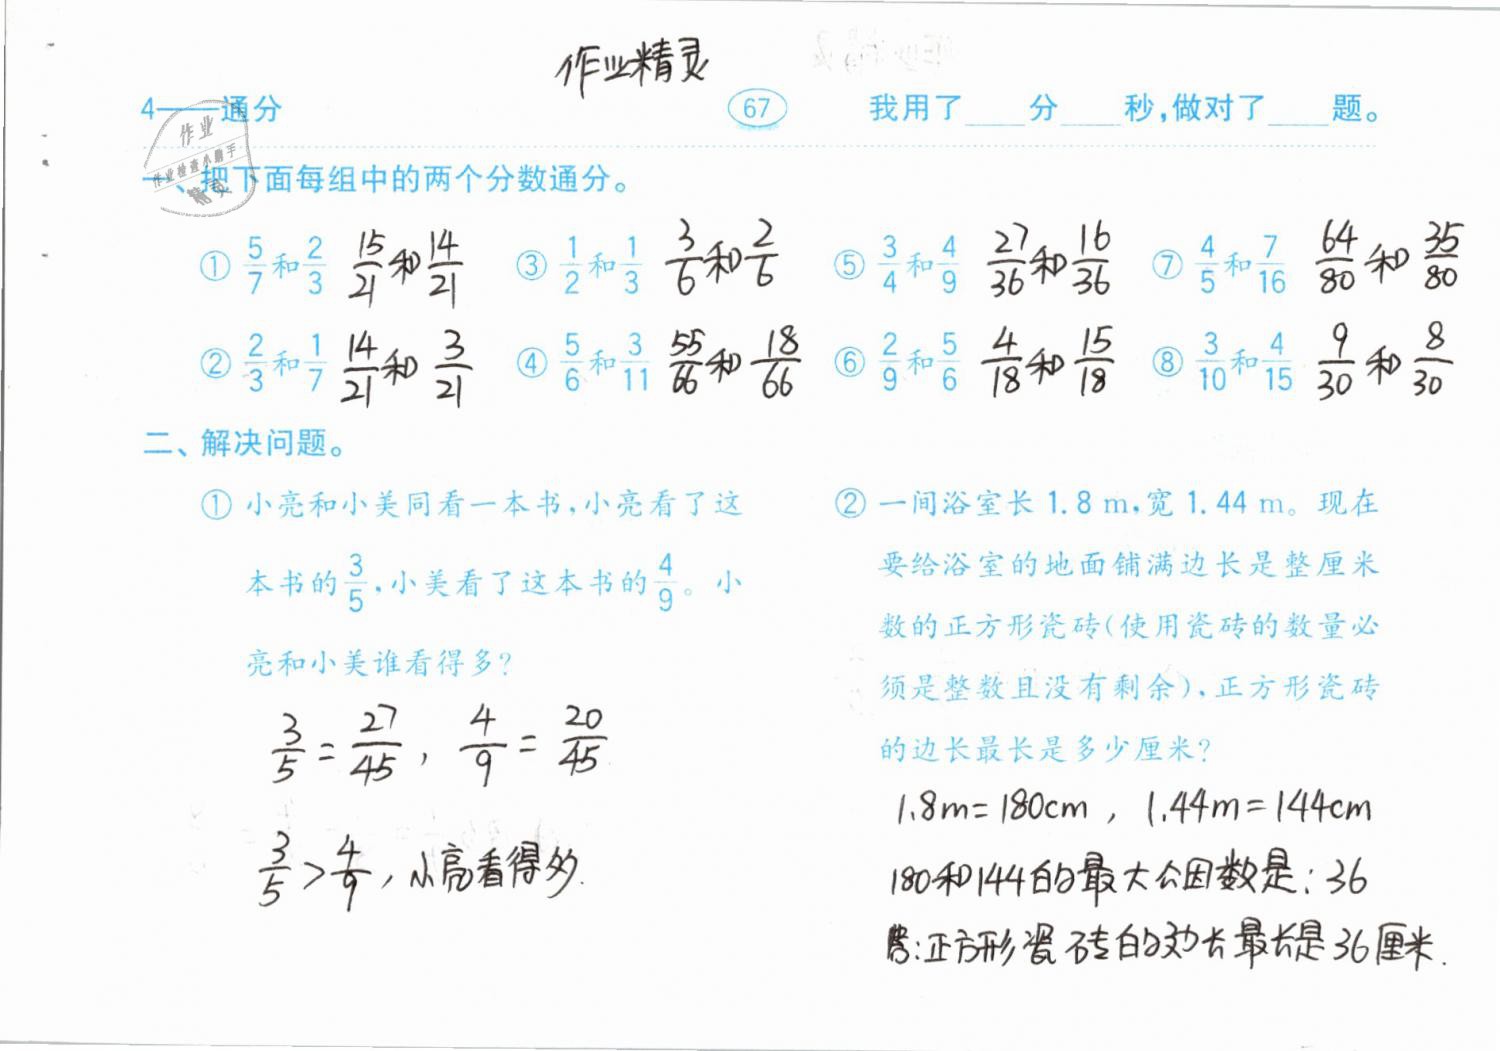 作业精灵
4——通分 67 我用了____分____秒,做对了____题。
作业
作业检查小助手
精灵
一、把下面每组中的两个分数通分。
① 5/7和2/3 15/21和14/21 ③ 1/2和1/3 3/6和2/6 ⑤ 3/4和4/9 27/36和16/36 ⑦ 4/5和7/16 64/80和35/80
② 2/3和1/7 14/21和3/21 ④ 5/6和3/11 55/66和18/66 ⑥ 2/9和5/6 4/18和15/18 ⑧ 3/10和4/15 9/30和8/30
二、解决问题。
① 小亮和小美同看一本书,小亮看了这
本书的3/5,小美看了这本书的4/9。小
亮和小美谁看得多?
3/5=27/45, 4/9=20/45
3/5>4/9,小亮看得多.
② 一间浴室长 1.8 m,宽 1.44 m。现在
要给浴室的地面铺满边长是整厘米
数的正方形瓷砖(使用瓷砖的数量必
须是整数且没有剩余),正方形瓷砖
的边长最长是多少厘米?
1.8m=180cm, 1.44m=144cm
180和144的最大公因数是:36
答:正方形瓷砖的边长最长是36厘米.